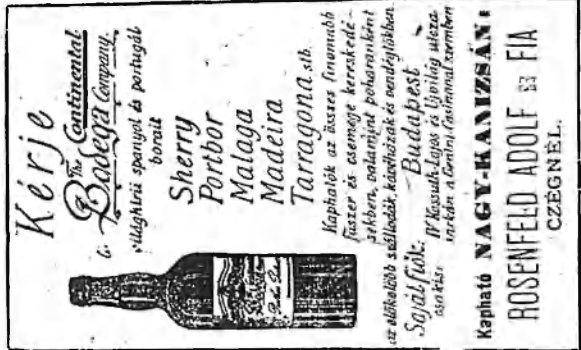 Kérje
a The Continental
Bodega Company.
világhírű spanyol és portugál
borait
Sherry
Portbor
Malaga
Madeira
Tarragona stb.
Kaphatók az összes finomabb
fűszer és csemege kereskedé-
sekben, valamint poharanként
az előkelőbb szállodák, kávéházak és vendéglőkben.
Saját fiók: Budapest
IV Kossuth Lajos és Ujvilág utcza
sarkán a Nemzeti Casinoval szemben
Kapható NAGY-KANIZSÁN:
ROSENFELD ADOLF és FIA
CZÉGNÉL.